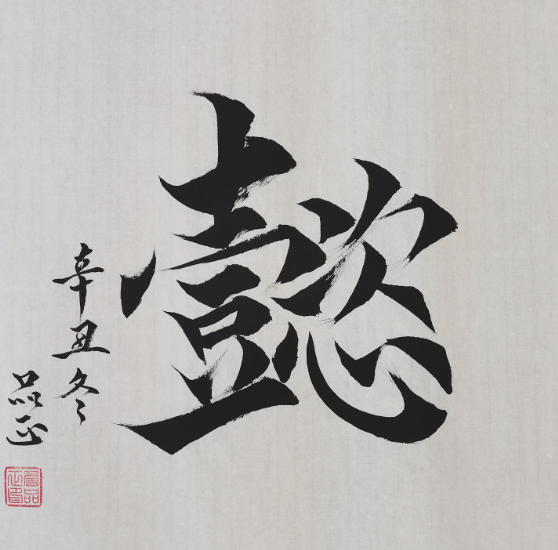 懿
辛丑冬
品正